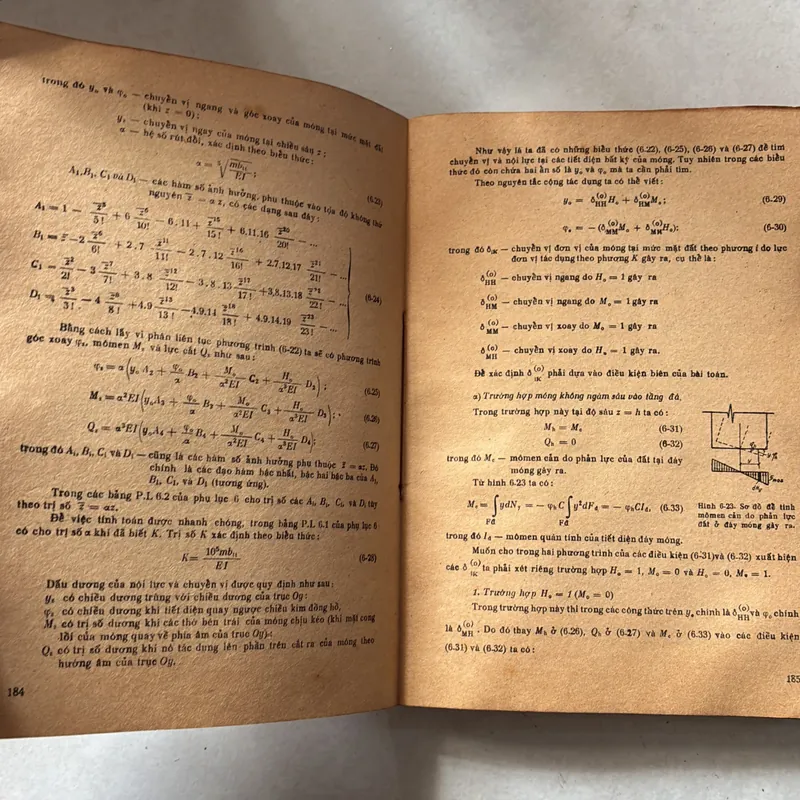 trong đó yₒ và φₒ — chuyển vị ngang và góc xoay của móng tại mức mặt đất
(khi z = 0);
y_z — chuyển vị ngay của móng tại chiều sâu z;
α — hệ số rút đổi, xác định theo biểu thức:
α = ⁵√(mb₁₁/EI); (6.23)
A₁,B₁, C₁ và D₁ — các hàm số ảnh hưởng, phụ thuộc vào tọa độ không thứ
nguyên z̄ = α z, có các dạng sau đây:
A₁ = 1 − z̄⁵/5! + 6 z̄¹⁰/10! − 6.11 + z̄¹⁵/15! + 6.11.16 z̄²⁰/20! − ...
B₁ = z̄ − 2 z̄⁶/6! + 2.7 z̄¹¹/11! − 2.7.12 z̄¹⁶/16! + 2.7.12.17 z̄²¹/21! − ...
C₁ = z̄²/2! − 3 z̄⁷/7! + 3.8 z̄¹²/12! − 3.8.13 z̄¹⁷/17! + 3.8.13.18 z̄²²/22! − ...
D₁ = z̄³/3! − 4 z̄⁸/8! + 4.9 z̄¹³/13! − 4.9.14 z̄¹⁸/18! + 4.9.14.19 z̄²³/23! − ... (6-24)
Bằng cách lấy vi phân liên tục phương trình (6-22) ta sẽ có phương trình
góc xoay φ_z, mômen M_z và lực cắt Q_z như sau:
φ_z = α(yₒA₂ + φₒ/α B₂ + Mₒ/α²EI C₂ + Hₒ/α³EI D₂); (6.25)
M_z = α²EI(yₒA₃ + φₒ/α B₃ + Mₒ/α²EI C₃ + Hₒ/α³EI D₃); (6.26)
Q_z = α³EI(yₒA₄ + φₒ/α B₄ + Mₒ/α²EI C₄ + Hₒ/α³EI D₄); (6.27)
trong đó Aᵢ, Bᵢ, Cᵢ và Dᵢ — cũng là các hàm số ảnh hưởng phụ thuộc z̄ = αz. Đó
chính là các đạo hàm bậc nhất, bậc hai bậc ba của A₁,
B₁, C₁, và D₁ (tương ứng).
Trong các bảng P.L 6.2 của phụ lục 6 cho trị số các Aᵢ, Bᵢ, Cᵢ, và Dᵢ tùy
theo trị số z̄ = αz.
Để việc tính toán được nhanh chóng, trong bảng P.L 6.1 của phụ lục 6
có cho trị số α khi đã biết K. Trị số K xác định theo biểu thức:
K = 10⁵mb₁₁/EI (6-28)
Dấu dương của nội lực và chuyển vị được quy định như sau:
y_z có chiều dương trùng với chiều dương của trục Oy;
φ_z có chiều dương khi tiết diện quay ngược chiều kim đồng hồ,
M_z có trị số dương khi các thớ bên trái của móng chịu kéo (khi mặt cong
lồi của móng quay về phía âm của trục Oy).
Q_z có trị số dương khi nó tác dụng lên phần trên cắt ra của móng theo
hướng âm của trục Oy.
184
Như vậy là ta đã có những biểu thức (6.22), (6-25), (6-26) và (6-27) để tìm
chuyển vị và nội lực tại các tiết diện bất kỳ của móng. Tuy nhiên trong các biểu
thức đó còn chứa hai ẩn số là yₒ và φₒ mà ta cần phải tìm.
Theo nguyên tắc cộng tác dụng ta có thể viết:
yₒ = δ⁽ᵒ⁾_HH Hₒ + δ⁽ᵒ⁾_HM Mₒ; (6-29)
φₒ = −(δ⁽ᵒ⁾_MM Mₒ + δ⁽ᵒ⁾_HM Hₒ); (6-30)
trong đó δ_iK — chuyển đơn vị của móng tại mức mặt đất theo phương i do lực
đơn vị tác dụng theo phương K gây ra, cụ thể là:
δ⁽ᵒ⁾_HH — chuyển vị ngang do Hₒ = 1 gây ra
δ⁽ᵒ⁾_HM — chuyển vị ngang do Mₒ = 1 gây ra
δ⁽ᵒ⁾_MM — chuyển vị xoay do Mₒ = 1 gây ra
δ⁽ᵒ⁾_MH — chuyển vị xoay do Hₒ = 1 gây ra.
Để xác định δ⁽ᵒ⁾_iK phải dựa vào điều kiện biên của bài toán.
a) Trường hợp móng không ngàm sâu vào tầng đá.
Trong trường hợp này tại độ sâu z = h ta có:
M_h = M_c (6-31)
Q_h = 0 (6-32)
trong đó M_c — mômen cản do phản lực của đất tại đáy
móng gây ra.
Từ hình 6-23 ta có:
M_c = ∫_Fđ ydN_y = − φ_hC ∫_Fđ y²dF_đ = − φ_hCI_đ. (6.33)
Hình 6-23. Sơ đồ để tính
mômen cản do phản lực
đất ở đáy móng gây ra.
trong đó I_đ — mômen quán tính của tiết diện đáy móng.
Muốn cho trong hai phương trình của các điều kiện (6-31) và (6-32) xuất hiện
các δ⁽ᵒ⁾_iK ta phải xét riêng trường hợp Hₒ = 1, Mₒ = 0 và Hₒ = 0, Mₒ = 1.
1. Trường hợp Hₒ = 1 (Mₒ = 0)
Trong trường hợp này thì trong các công thức trên yₒ chính là δ⁽ᵒ⁾_HH và φₒ chính
là δ⁽ᵒ⁾_MH. Do đó thay M_h ở (6.26), Q_h ở (6-27) và M_c ở (6.33) vào các điều kiện
(6-31) và (6-32) ta có:
185